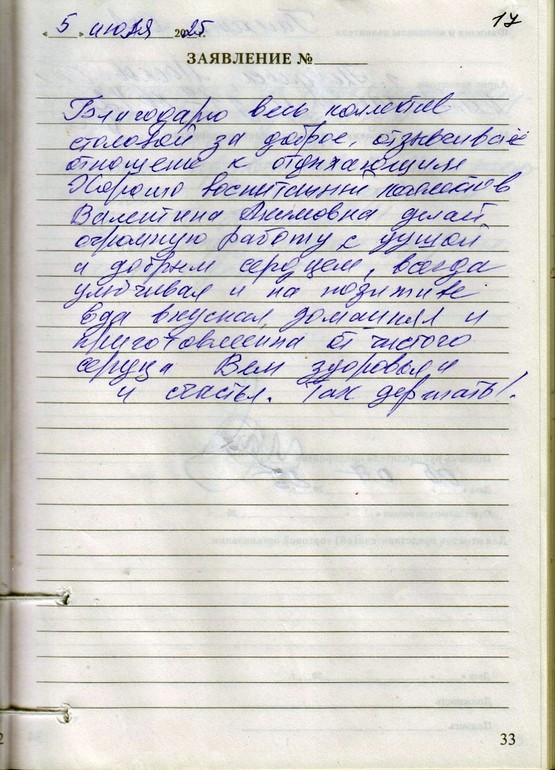 17
« 5 » июля 2025 г.
ЗАЯВЛЕНИЕ №
Благодарю весь коллектив
столовой за доброе, отзывчивое
отношение к отдыхающим
Хорошо воспитанный коллектив
Валентина Акимовна делает
огромную работу с душой
и добрым сердцем, всегда
улыбчивая и на позитиве
Еда вкусная, домашняя и
приготовленна от чистого
сердца Вам здоровья
и счастья. Так держать!.
33